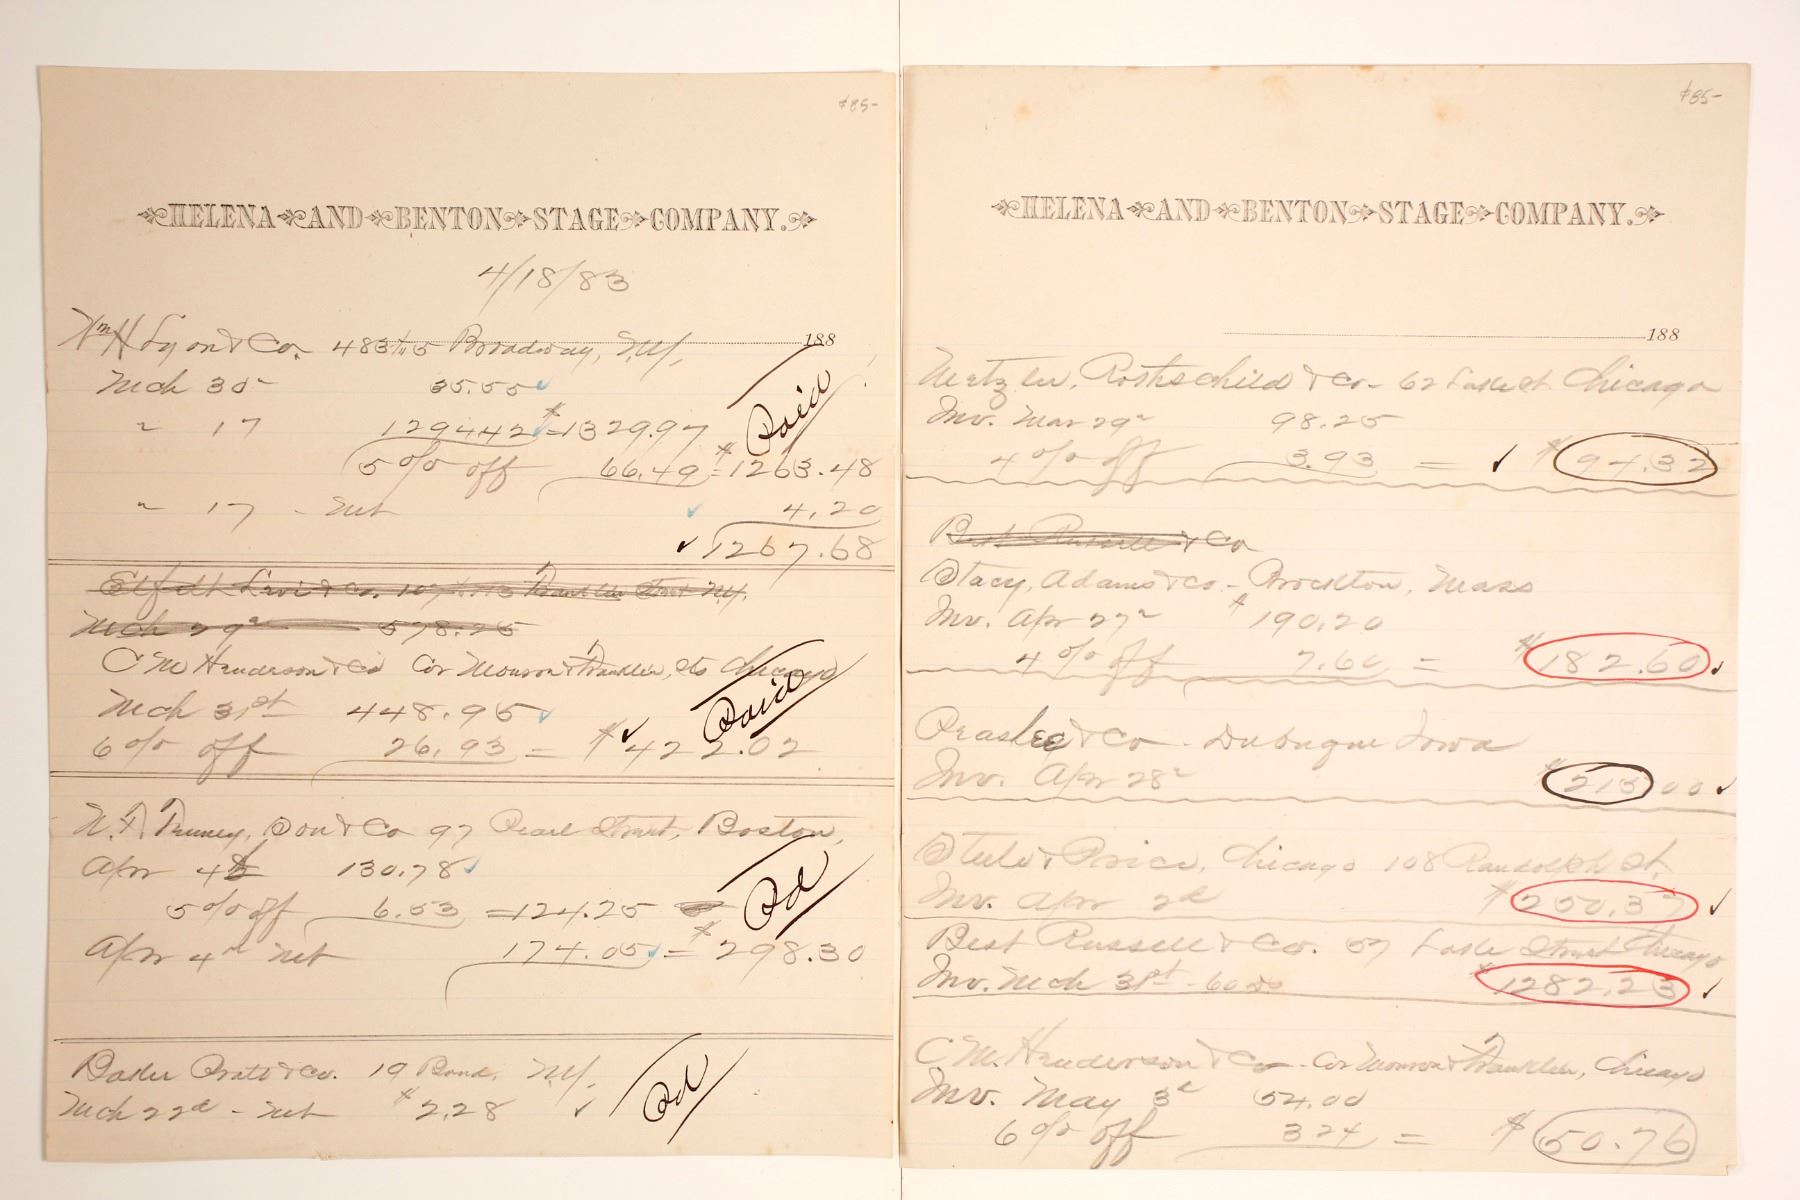 $85-
HELENA AND BENTON STAGE COMPANY.
4/18/83
188
Wm H Lyon & Co. 483 to 5 Broadway, N.Y.
Mch 30" 35.55
" 17 1294.42 $=1329.97
5% off 66.49 $=1263.48
" 17 - Net 4.20
1267.68
Paid
Elfelt Levi & Co. Franklin Street N.Y.
Mch 29" 578.25
C M Henderson & Co Cor Monroe & Franklin, Sts Chicago
Mch 31st 448.95
6% off 26.93 = $422.02
Paid
Son & Co 97 Pearl Street, Boston,
Apr 4th 130.78
5% off 6.53 =124.25
Apr 4th Net 174.05 = $298.30
Pd
Baker Pratt & Co. 19 Bond, N.Y.
Mch 22d - Net $2.28
Pd
$85-
HELENA AND BENTON STAGE COMPANY.
188
Metzler, Rothschild & Co - 62 Lake St. Chicago
Inv. Mar 29" 98.25
4% off 3.93 = $94.32
Best Russell & Co
Stacy, Adams & Co - Brockton, Mass
Inv. Apr 27" $190.20
4% off 7.60 = $182.60
Peaslee & Co - Dubuque Iowa
Inv. Apr 28" $215.00
Steele & Price, Chicago 108 Randolph St.
Inv. Apr 2d $250.37
Best Russell & Co. 57 Lake Street Chicago
Inv. Mch 31st - 60 ds $1282.23
C. M. Henderson & Co - Cor Monroe & Franklin, Chicago
Inv. May 3d 54.00
6% off 3 24 = $50.76